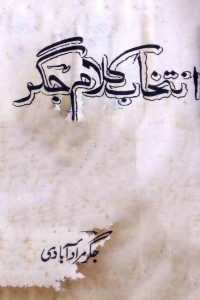 انتخاب کلام جگر
جگر مراد آبادی